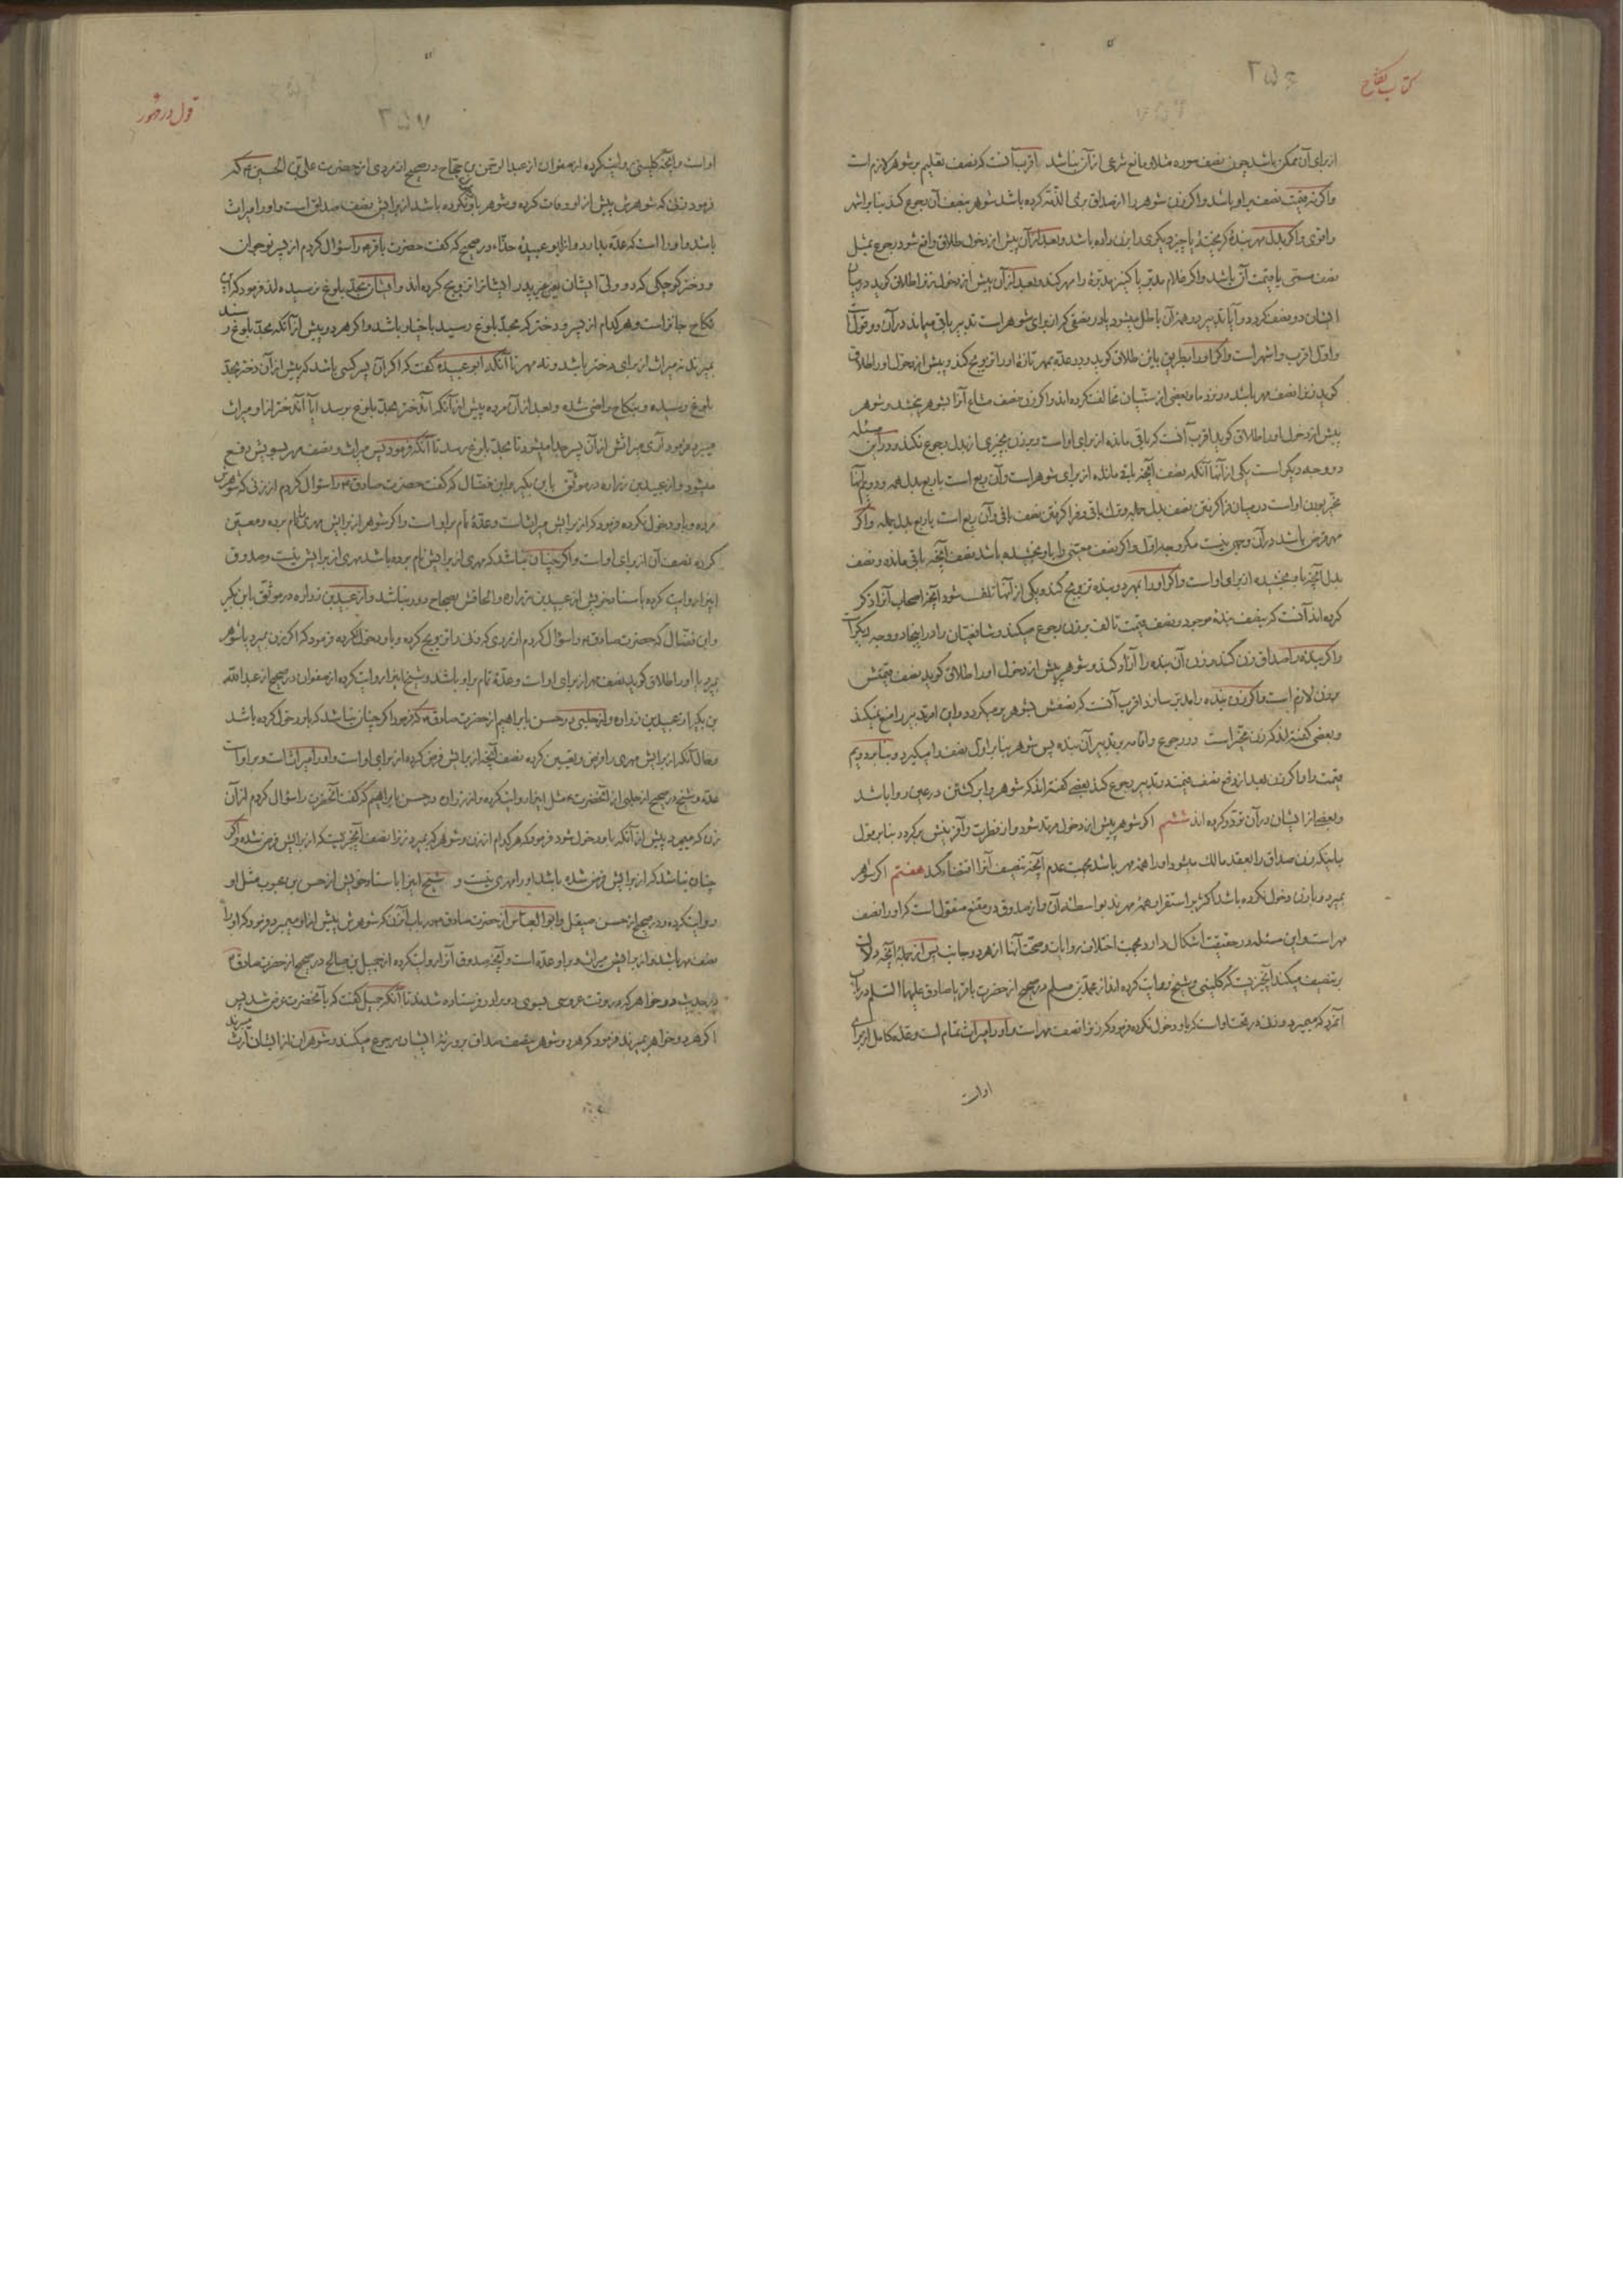 کتاب نکاح
۲۵۶
از برای آن ممکن باشد چون نصف سوره مثلا و مانع شرعی از آن نباشد اقرب آنست که نصف تعلیم بر شوهر لازم است
و اگر نه قیمت نصف بر او باشد و اگر زن شوهر را از صداق بری الذمه کرده باشد شوهر بنصف آن رجوع کند بنا بر اشهر
و اقوی و اگر بدل مهر بندهٔ گریخته یا چیز دیگری را بزن داده باشد و بعد از آن پیش از دخول طلاق واقع شود رجوع بمثل
نصف مسمی یا قیمت آن باشد و اگر غلام مدبر یا کنیز مدبرهٔ را مهر کند و بعد از آن پیش از دخول زنرا طلاق گوید در میان
ایشان دو نصف گردد و آیا تدبیر در همه آن باطل میشود یا در نصفی که از برای شوهر است تدبیر باقی میماند در آن دو قول
و اول اقرب و اشهر است و اگر او را بطریق باین طلاق گوید و در عده بمهر تازه او را تزویج کند و پیش از دخول او را طلاق
گوید زنرا نصف مهر باشد در نزد ما و بعضی از سنیان مخالفت کرده اند و اگر زن نصف مشاع آنرا بشوهر بخشد و شوهر
پیش از دخول او را طلاق گوید اقرب آنست که باقی مانده از برای او است و بر زن بچیزی از بدل رجوع نکند و در این مسئله
دو وجه دیگر است یکی از آنها آنکه نصف آنچه باقی مانده از برای شوهر است و آن ربع است با ربع بدل همه و دویم آنها
مخیر بودن او است در میان فرا گرفتن نصف بدل جمله و ترک باقی و فرا گرفتن نصف باقی و آن ربع است با ربع بدل جمله و اگر
مهر قرض باشد در آن وجهی نیست مگر وجه اول و اگر نصف معینی را باو بخشیده باشد نصف آنچه باقی مانده و نصف
بدل آنچه باو بخشیده از برای او است و اگر او را بمهر دو بنده تزویج کند و یکی از آنها تلف شود آنچه اصحاب آنرا ذکر
کرده اند آنست که بنصف بندهٔ موجود و نصف قیمت تالف بر زن رجوع میکند و شافعیان را در اینجا دو وجه دیگر است
و اگر بنده را صداق زن کند و زن آن بنده را آزاد کند و شوهر پیش از دخول او را طلاق گوید نصف قیمتش
بر زن لازم است و اگر زن بنده را مدبر سازد اقرب آنست که نصفش بشوهر بر میگردد و این امر تدبیر را منع نمیکند
و بعضی گفته اند که زن مخیر است در رجوع و اقامه بر تدبیر آن بنده پس شوهر بنا بر اول نصف را میگیرد و بنا بر دویم
قیمت را و اگر زن بعد از دفع نصف قیمت در تدبیر رجوع کند بعضی گفته اند که شوهر را بر گشتن در عین روا باشد
و بعضی از ایشان در آن تردد کرده اند ششم اگر شوهر پیش از دخول مرتد شود و از فطرت و آفرینش بر گردد بنا بر قول
باینکه زن صداق را بعقد مالک میشود او را همه مهر باشد بجهت عدم آنچه تنصیف آنرا اقتضاء کند هفتم اگر شوهر
بمیرد و با زن دخول نکرده باشد اکثر بر استقرار همه مهرند بواسطهٔ آن و از صدوق در مقنع منقول است که او را نصف
مهر است و این مسئله در حقیقت اشکال دارد بجهت اختلاف روایات و صحت آنها از هر دو جانب پس از جملهٔ آنچه دلالت
بر تنصیف میکند آنچیزیست که کلینی و شیخ روایت کرده اند از محمد بن مسلم در صحیح از حضرت باقر یا صادق علیهما السلم در باب
آنمرد که میمیرد و زن در تحت او است که باو دخول نکرده فرمود که زنرا نصف مهر است و او را میراث تمام است و عدهٔ کامل از برای
او است
قول در مهور
۲۵۷
او است و آنچه کلینی روایت کرده از صفوان از عبد الرحمن بن حجاج در صحیح از مردی از حضرت علی بن الحسین ع که
فرمود زنی که شوهرش پیش از او وفات کرده و شوهر باو نکرده باشد از برایش نصف صداق است و او را میراث
باشد و او را است که عده بدارد و از ابو عبیدهٔ حذاء در صحیح که گفت حضرت باقر ع را سؤال کردم از پسر نوجوان
و دختر کوچکی که دو ولی ایشان بغیر پدر ایشانرا تزویج کرده اند و ایشان بحد بلوغ نرسیده اند فرمود که این
نکاح جائز است و هر کدام از پسر و دختر که بحد بلوغ رسید با خیار باشد و اگر هر دو پیش از آنکه بحد بلوغ رسند
بمیرند نه میراث از برای دختر باشد و نه مهر تا آنکه ابو عبیده گفت که اگر آن پسر کسی باشد که پیش از آن دختر بحد
بلوغ رسیده و بنکاح راضی شده و بعد از آن مرده پیش از آنکه آندختر بحد بلوغ برسد آیا آندختر از او میراث
میبرد فرمود آری میراثش از آن پسر جدا میشود تا بحد بلوغ برسد تا آنکه فرمود پس میراث و نصف مهر بسویش دفع
میشود و از عبید بن زراره در موثق بابن بکیر و ابن فضال که گفت حضرت صادق ع را سؤال کردم از زنی که شوهرش
مرده و باو دخول نکرده فرمود که از برایش میراث است و عدهٔ تمام بر او است و اگر شوهر از برایش مهری نام برده و معین
کرده نصف آن از برای او است و اگر چنان نباشد که مهری از برایش نام برده باشد مهری از برایش نیست و صدوق
اینرا روایت کرده باسناد خویش از عبید بن زراره و الحاقش بصحاح دور نباشد و از عبید بن زراره در موثق بابن بکیر
و ابن فضال که حضرت صادق ع را سؤال کردم از مردی که زن را تزویج کرده و باو دخول نکرده فرمود که اگر زن بمیرد یا شوهر
بمیرد یا او را طلاق گوید نصف مهر از برای او است و عدهٔ تمام بر او باشد و شیخ اینرا روایت کرده از صفوان در صحیح از عبد الله
بن بکیر از عبید بن زراره و از حلبی در حسن بابراهیم از حضرت صادق ع که فرمود اگر چنان نباشد که باو دخول کرده باشد
و حال آنکه از برایش مهری را فرض و تعیین کرده نصف آنچه از برایش فرض کرده از برای او است و او را میراث است و بر او است
عده و شیخ در صحیح از حلبی از آنحضرت ع مثل اینرا روایت کرده و از زراره در حسن بابراهیم که گفت آنحضرت را سؤال کردم از آن
زن که میمیرد پیش از آنکه باو دخول شود فرمود که هر کدام از زن و شوهر که بمیرد زنرا نصف آنچیزیست که از برایش فرض شده و اگر
چنان نباشد که از برایش فرض شده باشد او را مهری نیست و شیخ اینرا باسناد خویش از حسن بن محبوب مثل او
روایت کرده و در صحیح از حسن صیقل و ابو العباس از حضرت صادق ع در باب آنزن که شوهرش پیش از او میمیرد فرمود که او را
نصف مهر باشد و از برایش میراث و بر او عده است و آنچه صدوق آنرا روایت کرده از جمیل بن صالح در صحیح از حضرت صادق ع
در حدیث دو خواهر که در وقت عروسی بسوی دو برادر فرستاده شدند تا آنکه جمیل گفت که بآنحضرت عرض شد پس
اگر هر دو خواهر بمیرند فرمود که هر دو شوهر بنصف صداق بر ورثهٔ ایشان رجوع میکنند و شوهران از ایشان ارث میبرند